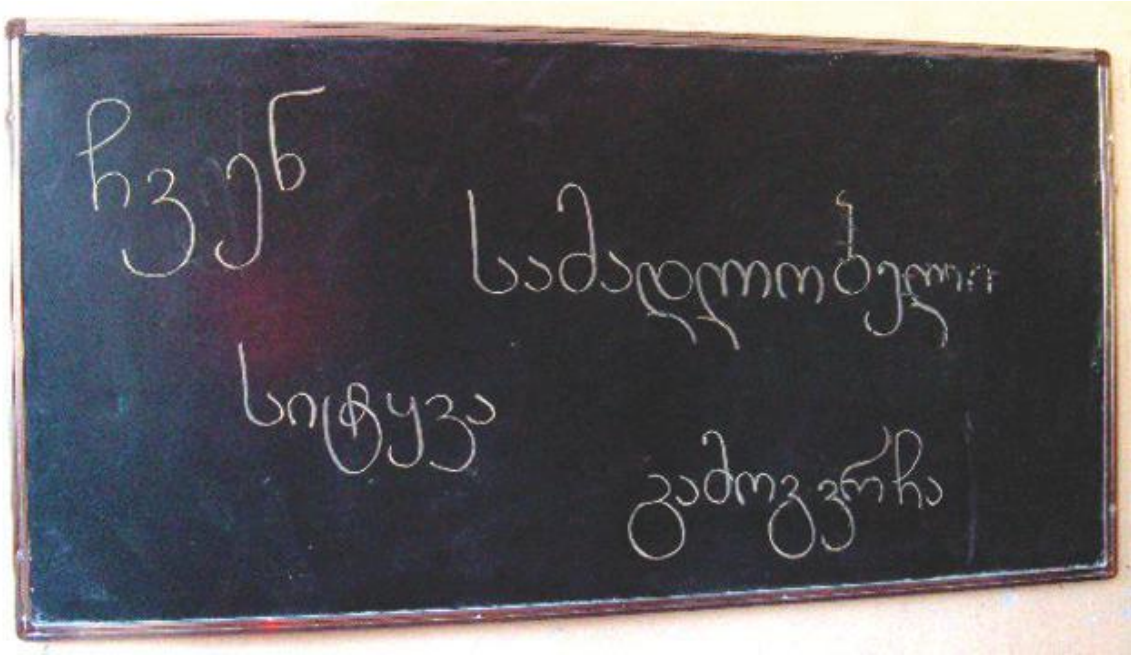 ჩვენ
სამადლობელო
სიტყვა
გამოგვრჩა